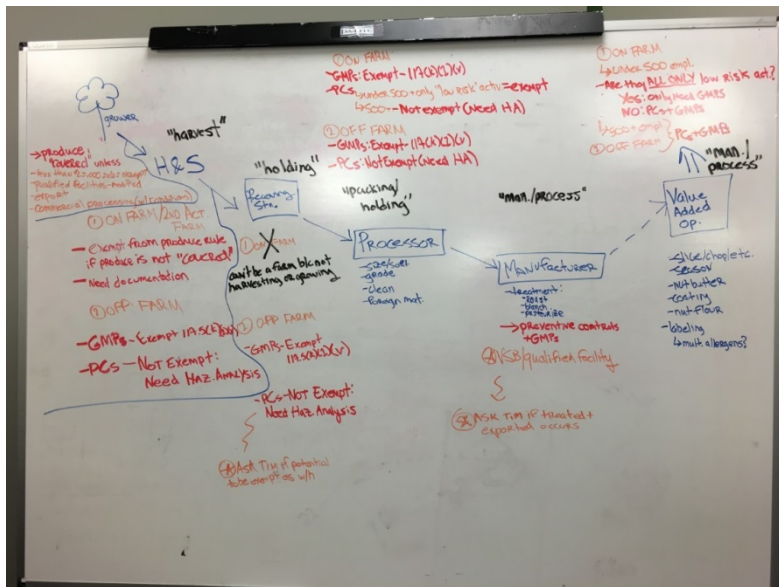 grower
→ produce
"covered" unless
qualified facilities - modified
export
- commercial processing
"harvest"
H&S
① ON FARM/2ND ACT. FARM
- Exempt from produce rule
if produce is not "covered"
- Need documentation
② OFF FARM
- GMPs - Exempt 117.5(k)
- PCs - NOT EXEMPT:
NEED HAZ. ANALYSIS
"holding"
Receiving
Stn.
① ON FARM
X
can't be a farm b/c not
harvesting or growing
② OFF FARM
- GMPs - Exempt
117.5(k)(1)(v)
- PCs - NOT EXEMPT:
Need Haz Analysis
ASK TIM if potential
to be exempt as w/h
① ON FARM
- GMPs: Exempt - 117(k)(1)(v)
- PCs: under 500 + only "low risk" activ = exempt
↳ 500+ - Not exempt (Need HA)
② OFF FARM
- GMPs: Exempt - 117(k)(1)(v)
- PCs: Not Exempt (Need HA)
"packing/
holding"
PROCESSOR
- size/sort
- grade
- clean
- foreign mat.
"man./process"
MANUFACTURER
- treatment:
- roast
- blanch
- pasteurize
→ preventive controls
+ GMPs
VSB/qualified facility
ASK TIM if treated +
exported occurs
① ON FARM
↳ under 500 empl.
- Are they ALL ONLY low risk act.?
YES: only Need GMPs
NO: PCs + GMPs
↳ 500+ empl.
② OFF FARM
PCs + GMPs
"man./
process"
Value
Added
Op.
- slice/chop etc.
- season
- nut butter
- coating
- nut flour
- labeling
↳ mult. allergens?